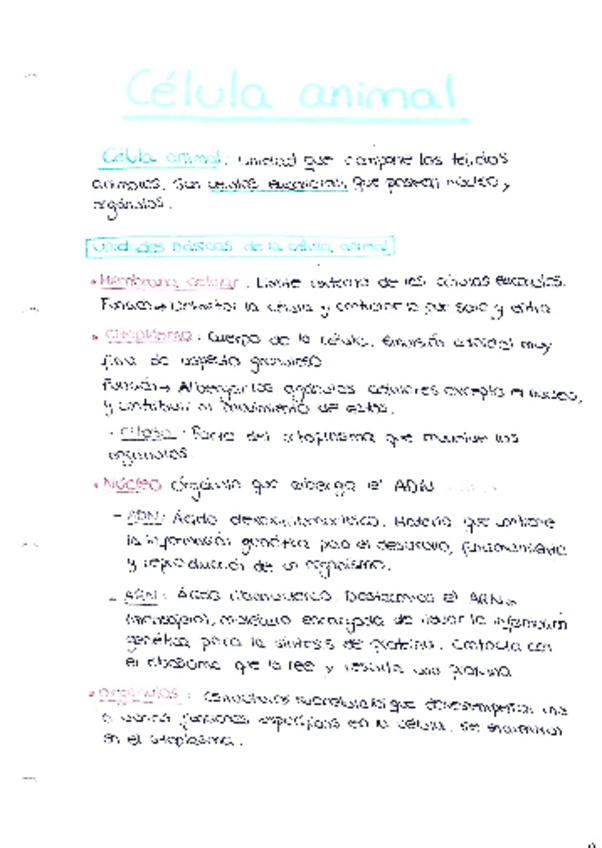 Célula animal
Célula animal: Unidad que compone los tejidos
animales. Son células eucariotas, que poseen núcleo y
orgánulos.
Unidades básicas de la célula animal
• Membrana celular: Límite externo de las células eucariotas.
Función → Delimitar la célula y controlar lo que sale y entra
• Citoplasma: Cuerpo de la célula. Emulsión coloidal muy
fina de aspecto granuloso
Función → Albergar los orgánulos celulares excepto el núcleo,
y contribuir al movimiento de estos.
- Citosol: Parte del citoplasma que mantiene los
orgánulos
• Núcleo: Orgánulo que alberga el ADN
- ADN: Ácido desoxirribonucleico. Material que contiene
la información genética para el desarrollo, funcionamiento
y reproducción de un organismo.
- ARN: Ácido ribonucleico. Destacamos el ARNm
(mensajero), molécula encargada de llevar la información
genética para la síntesis de proteína. Contacta con
el ribosoma que la lee y resulta una proteína
• Orgánulos: Estructuras subcelulares que desempeñan una
o varias funciones específicas en la célula. Se encuentran
en el citoplasma.